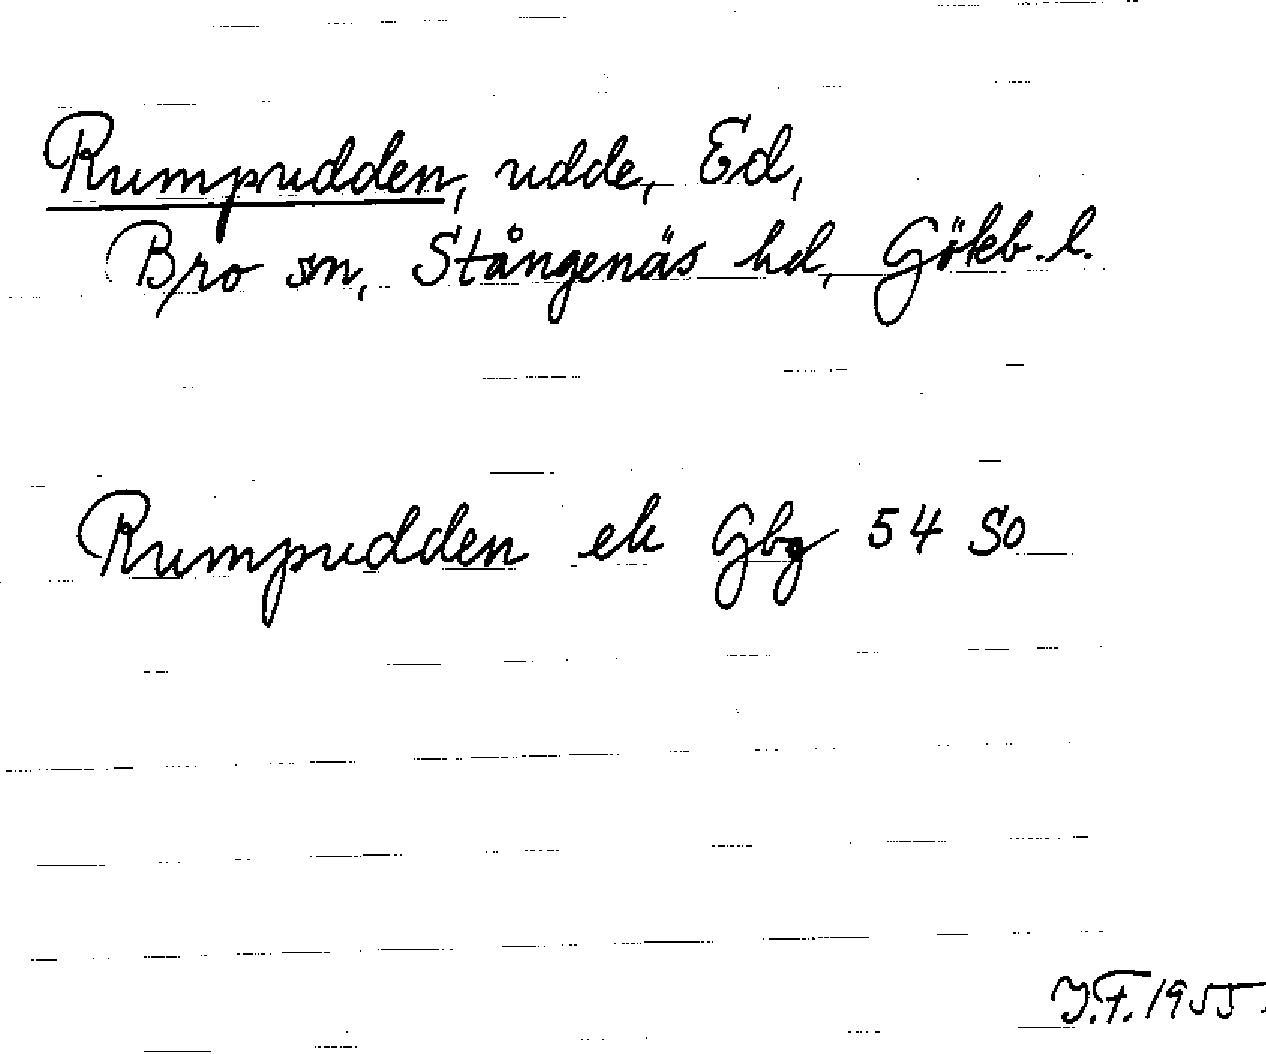 Rumpudden, udde, Ed,
Bro sn, Stångenäs hd, Göteb. l.
Rumpudden ek Gbg 54 So
J.F. 1955.